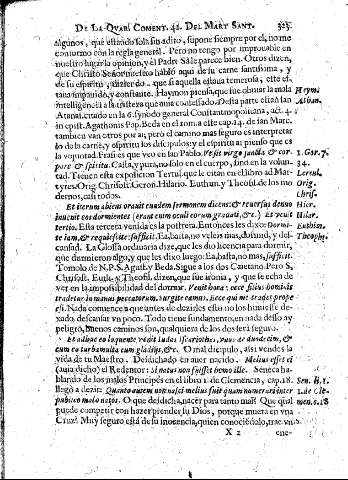 DE LA QVARI COMENT. 42. DEL MART SANT. 323.
algunos, que estando sola sin adito, supone siempre por el, no me
conformo con la regla general. Pero no tengo por improuable en
nuestro lugar la opinion, y el Padre Sâ le parece bien. Otros dizen,
que Christo Señor nuestro hablò aqui de su carne santissima, y
de su espiritu, diziendo: que si aquella estaua temerosa, este es-
taua impauido, y constante. Haymon piensa, que fue
inteligencia a la tristeza que auia confessado. Desta parte estàn san
Atanas. citado en la 6. synodo general Constantinopolitana, act. 4.
in epist. Agathonis Pap. Beda en el toma este cap. 14. de san Marc.
tambien van otros por aì; pero el camino mas seguro es interpretar
lo de la carne, y espiritu los discipulos: y el espiritu aì pienso que es
la voluntad. Frasis que veo en san Pablo.
pore & spiritu. Casta, y pura, no solo en el cuerpo, sino en la volun-
tad. Tienen esta exposicion Tertul. que le citan en el libro ad Mar-
tyres. Orig. Chrisost. Geron. Hilario. Euthim. y Theofil. de los mo
dernos, casi todos.
Et iterum abiens orauit eundem sermonem dicens: & reuersus denuo
inuenit eos dormientes (erant enim oculi eorum grauati, &c.) Et venit
tertio. Esta tercera venida es la postrera. Entonces les dize: Dormi-
te iam, & requiescite: sufficit. Ea, basta, no veleis mas, dormid, y des-
cansad. La Glossa ordinaria dize, que les dio licencia para dormir,
que durmieron algo, y que les dixo luego: Ea, basta, no mas, sufficit.
Tomolo de N.P.S. Agust. y Beda. Sigue a los dos Caetano. Pero S,
Chrisost. Eut. y Theofil. dizen, que fue ironia, y que se echa de
ver en la impossibilidad del dormir. Venit hora: ecce filius hominis
tradetur in manus peccatorum. Surgite eamus. Ecce qui me tradet prope
est. Nada comiença que antes no dezildes esso no los humilde de-
xado descansar vn poco. Todo tiene fundamento, en nada desso ay
peligro, buenos caminos son, qualquiera de los dos serà seguro.
Et adhuc eo loquente, venit Iudas Iscariothes, vnus de duodecim, &
cum eo turba multa cum gladijs, &c. O mal dicipulo, assi vendes la
vida de tu Maestro. Desdichado en auer nacido. Melius esset ei
(auia dicho) el Redentor: si natus non fuisset homo ille. Seneca ha-
blando de los malos Principes en el libro 1. de Clemencia, cap. 18.
llegò a dezir: Quanto autem melius fuit quam numerari inter
publico malo natos. O que desdicha, nacer para tanto mal! Que qual
puede competir con hazer prender su Dios, porque muera en vna
Cruz? Muy seguro està de su inocencia, quien conociendolo, trae
X 2 ene-
Haymi
Alban.
1. Cor. 7.
34.
Tertul.
Orig.
Chris.
Hier.
Hilar.
Euthim.
Theophi.
Sen. li. 1.
de Cle-
men. c. 18